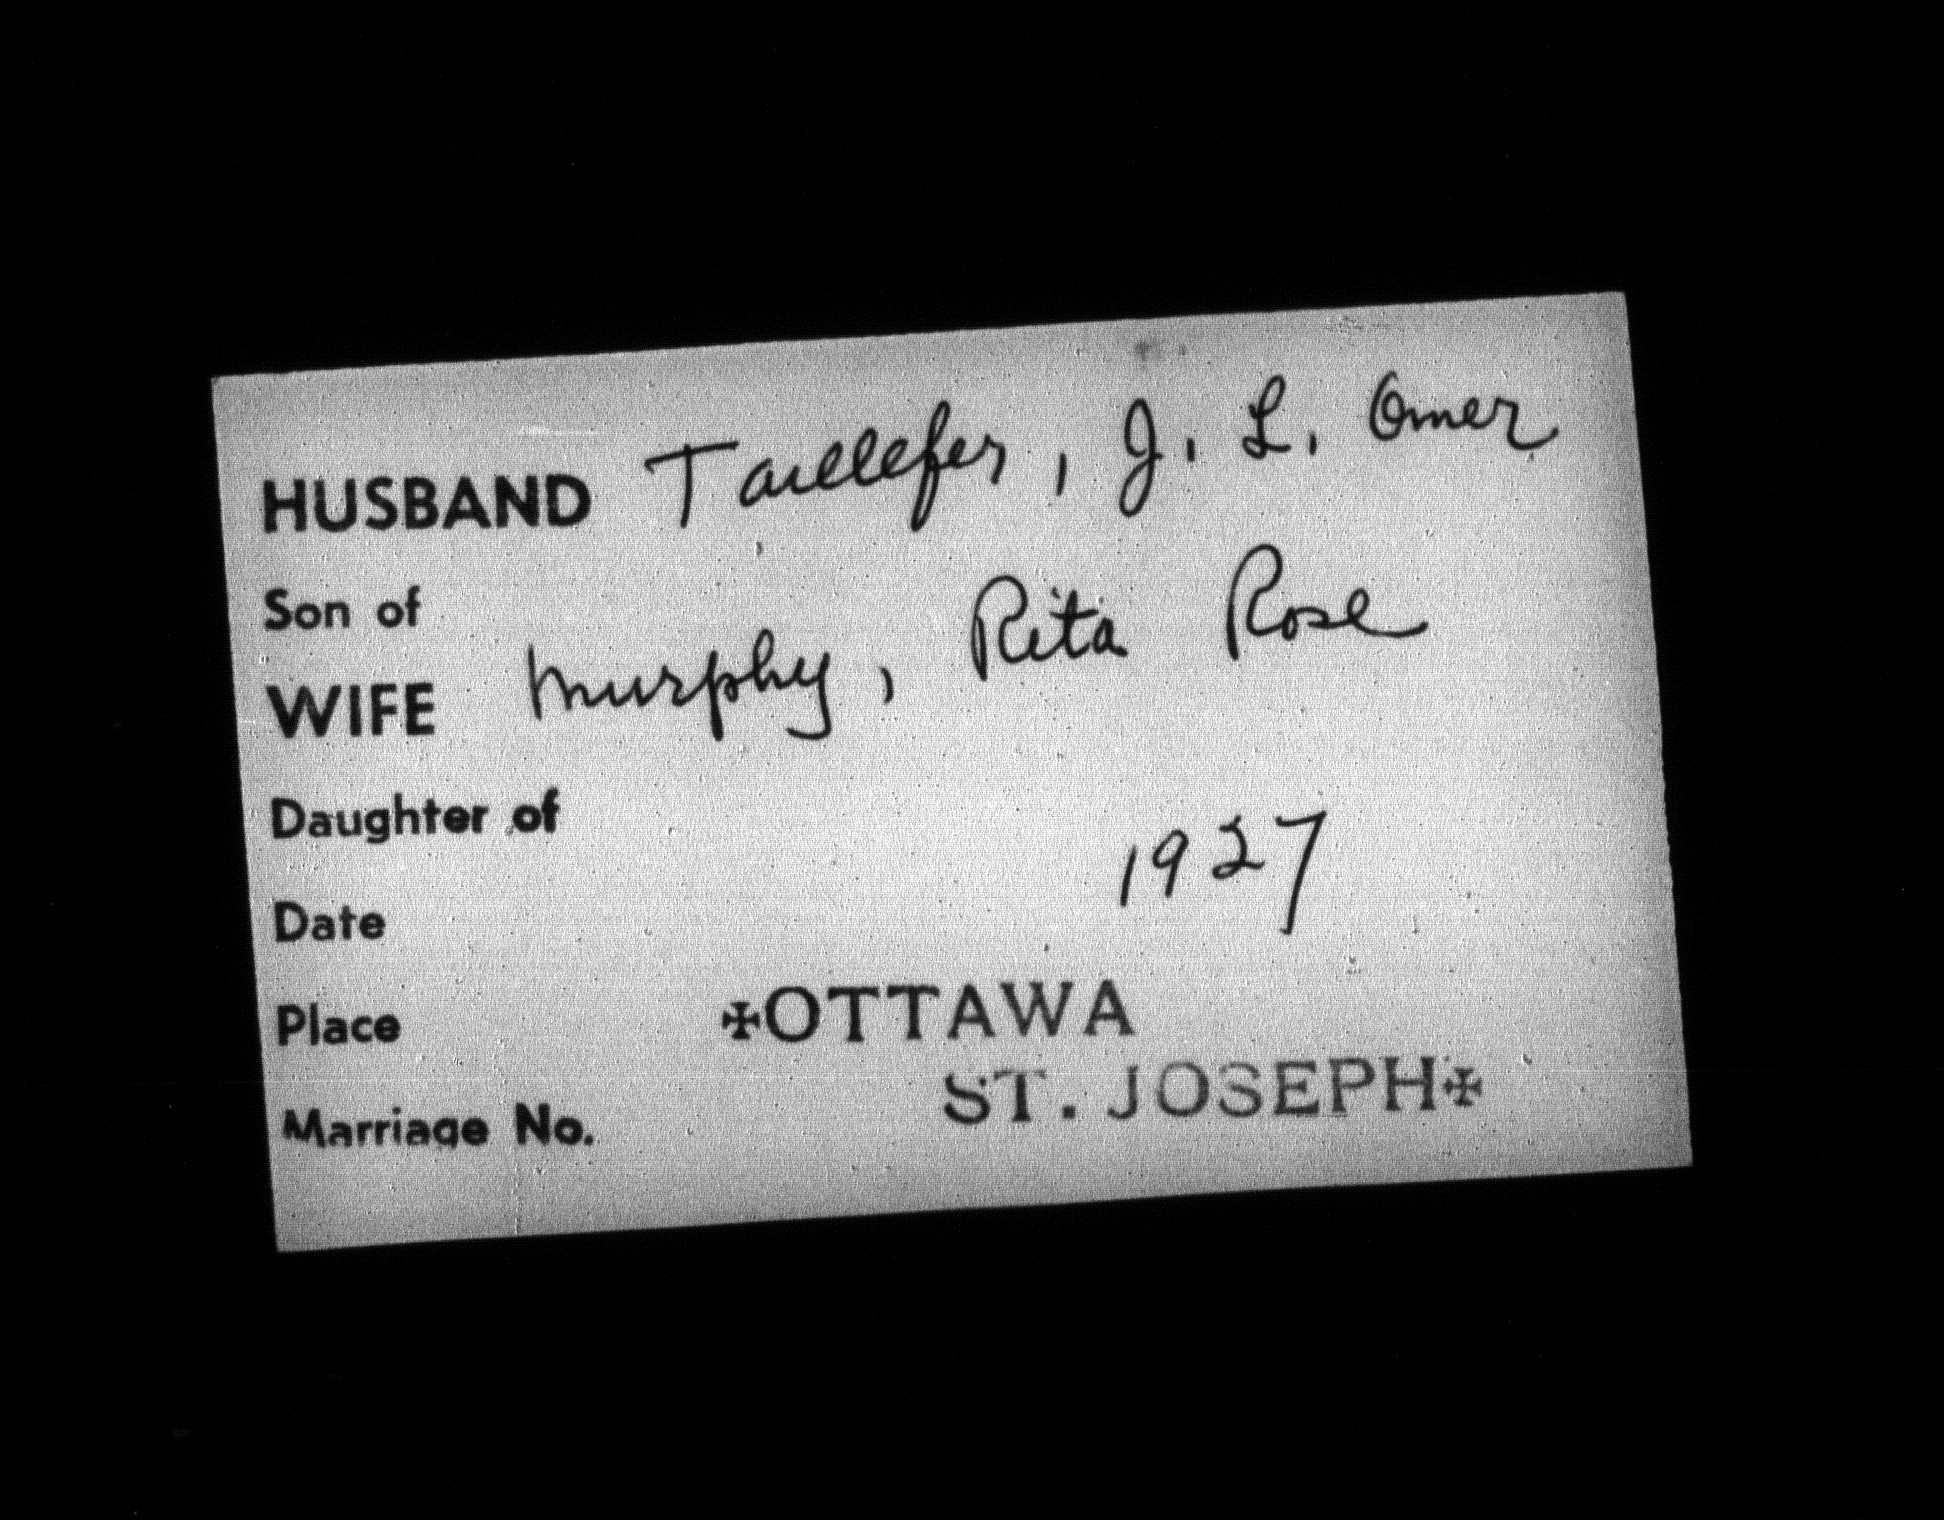 HUSBAND Taillefer, J. L. Omer
Son of
WIFE Murphy, Rita Rose
Daughter of
Date 1927
Place ✠OTTAWA
ST. JOSEPH✠
Marriage No.